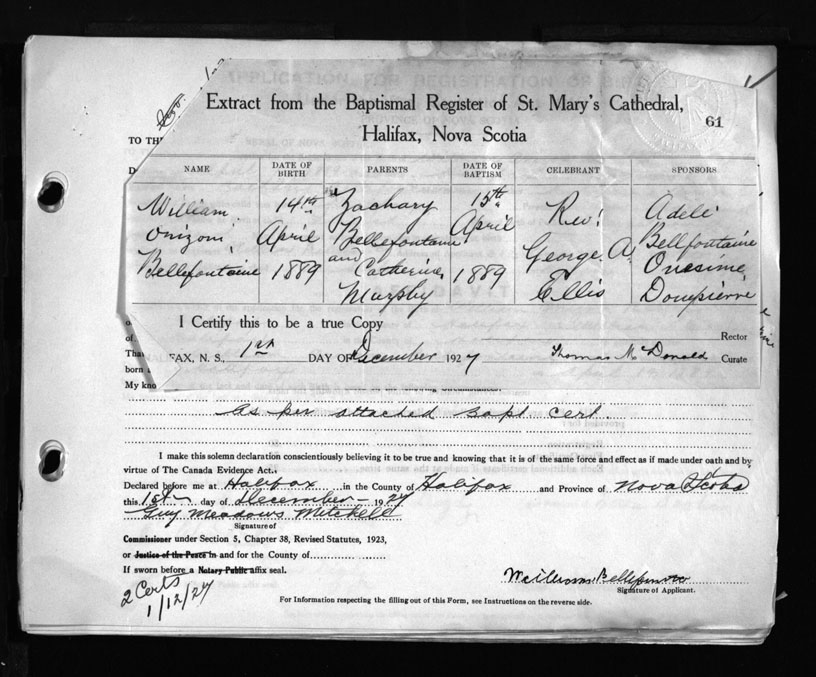 Extract from the Baptismal Register of St. Mary's Cathedral,
Halifax, Nova Scotia
61
TO TH
NAME DATE OF BIRTH PARENTS DATE OF BAPTISM CELEBRANT SPONSORS
William 14th Zachary 15th Rev. Adele
Onizom April Bellefontaine April George. A. Bellfontaine
Bellefontaine 1889 and Catherine 1889 Ellis Onesime
Murphy Doupierre
I Certify this to be a true Copy
Rector
FAX, N. S., 1st DAY OF December 1927 Thomas McDonald Curate
born
My kno
as per attached Bapt Cert.
I make this solemn declaration conscientiously believing it to be true and knowing that it is of the same force and effect as if made under oath and by
virtue of The Canada Evidence Act.
Declared before me at Halifax in the County of Halifax and Province of Nova Scotia
this 1st day of December 1927
Guy Meadows Mitchell
Signature of
Commissioner under Section 5, Chapter 38, Revised Statutes, 1923,
or Justice of the Peace in and for the County of
If sworn before a Notary Public affix seal.
2 Certs
1/12/27
William Bellefontaine
Signature of Applicant.
For Information respecting the filling out of this Form, see Instructions on the reverse side.